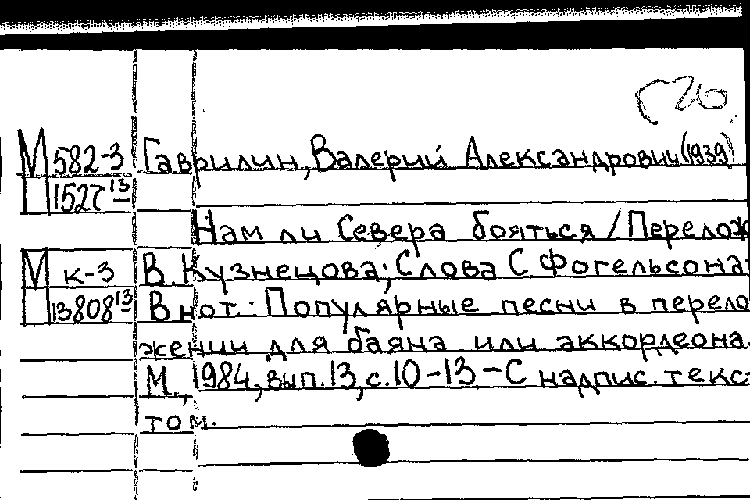 Г26
М 582-3 Гаврилин, Валерий Александрович (1939)
1527 13
Нам ли Севера бояться / Перелож
М к-3 В. Кузнецова; Слова С Фогельсона.
13808 13 В нот.: Популярные песни в перело
жении для баяна или аккордеона.
М., 1984, вып. 13, с. 10-13 - С надпис. текс
том.